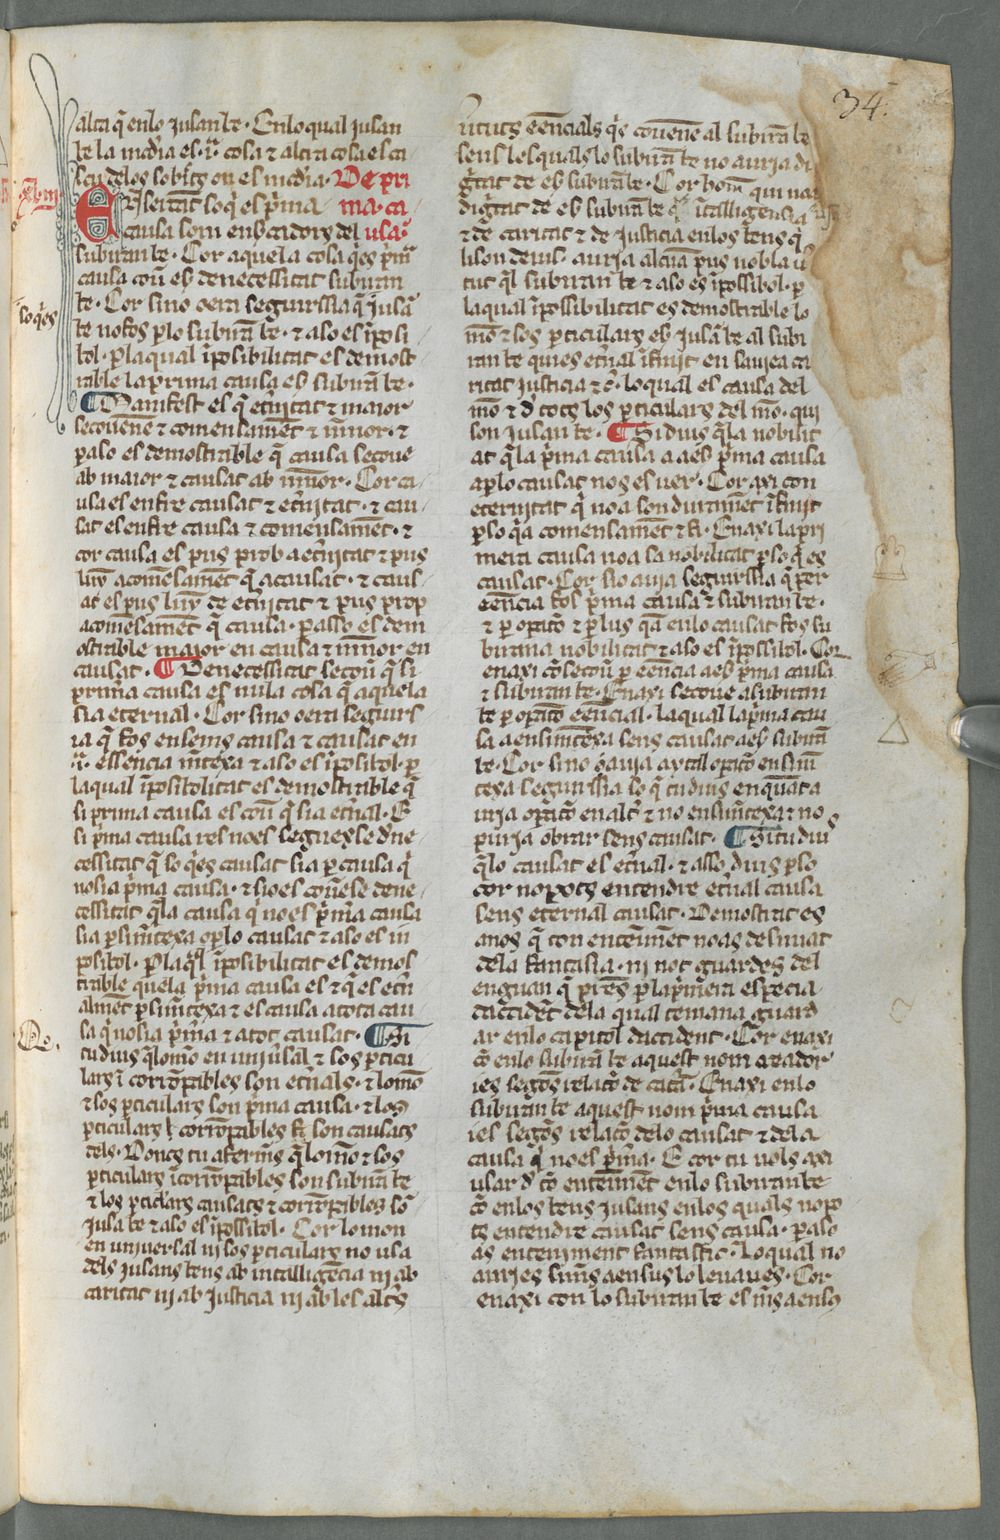 34.
alta q̄ en lo jusan be · En lo qual jusan
be la mat̄ia es .i͛. cosa ⁊ altra cosa es ca
scu delos sob̄tꝫ on es mat̄ia · De pri
ma · ca
usa ·
En seītat so q̄ es p̄ma
causa som enbcadors del
subiran be · Cor aquela cosa q̄es p̄mͣ
causa coū eb de necessitat subiran
be · Cor sino oera seguirssia q̄ jusā
be no fos p̄ lo subirā be · ⁊ aso es īposi
bol · p̄ la qual īposibilitat es demost
rable la prima causa eb subirā be ·
so q̄es
¶ Manifest es q̄ et̄nitat ⁊ maior
se couenē ⁊ comensamēt ⁊ mīnor · ⁊
p̄ aso es demostrable q̄ causa se coue
ab maior ⁊ causat ab mīnor · Cor ca
usa es enfre causat ⁊ et̄nitat · ⁊ cau
sat es enfre causa ⁊ comensamēt · ⁊
cor causa es pus prob a et̄nitat ⁊ pus
luȳ a comēsamēt q̄ a causat · ⁊ caus
at es pus luȳ de et̄nitat ⁊ pus prop
a comēsamēt q̄ causa · p̄ asso es dem
ostrable major en causa ⁊ mīnor en
causat · ¶ De necessitat secoū q̄ si
prima causa es nula cosa q̄ aquela
sia eternal · Cor sino oera seguirs
ia q̄ fos ensems causa ⁊ causat en
.i͛. essēcia m̄texa ⁊ aso es īposibol · p̄
la qual īposibolitat es demostrable q̄
si prima causa es coū q̄ sia et̄nal · E
si p̄ma causa res no es seguexse d̄ ne
cessitat q̄ so q̄es causat sia p̄ causa q̄
no sia p̄ma causa · ⁊ si o es coūe se de ne
cessitat q̄ la causa q̄ no es p̄ma causa
sia p̄ sim̄texa o p̄ lo causat ⁊ aso es in
posibol · p̄ la q̄l īposibilitat es demos
trable quela p̄ma causa es ⁊ q̄ es et̄n
alment p̄ sim̄texa ⁊ es causa a tota cau
sa q̄ no sia p̄ma ⁊ a tot causat · ¶ Si
Qo.
tu dius q̄ lo mō en univ̄sal ⁊ sos p̄ticu
lars ī corrōpables son et̄nals · ⁊ lo mō
⁊ sos p̄ticulars son p̄ma causa · ⁊ los
p̄ticulars corrōpables son causats
dels · Doncs tu afermes q̄ lo mō ⁊ sos
p̄ticulars īcorrōpables son subirā be
⁊ los p̄ticlars causats ⁊ corrōpables sō
jusā be ⁊ aso es īpossibol · Cor lo mon
en universal ni sos p̄ticulars no usa
dels jusans bens ab intalligēcia ni ab
caritat ni ab justicia ni ab les altr̄s
virtuts eēncials q̄s couenē al subirā be
sens les quals lo subirā be no auria di
gnitat de eb subirā be · Cor hom̄ qui usa
dignitat de eb subirā be q̄ ītalligensia
⁊ de caritat ⁊ de justicia en los bens q̄
li son deius auria altra pus nobla v̄
tut q̄l subiran be ⁊ aso es īpossibol · p̄
la qual īpossibilitat es demostrable lo
mō ⁊ sos p̄ticulars eb jusā be al subi
ran be qui es et̄nal īfinit en sauiea ca
ritat justicia ⁊c̄ · lo qual es causa del
mō ⁊ d̄ tots los p̄ticulars del mō · qui
son jusan be · ¶ Si dius q̄ la nobilit
at q̄ la p̄ma causa a a eb p̄ma causa
a p̄ lo causat no es es uer · Cor axi con
eternitat q̄ no a son duramēt īfinit
p̄ so q̄ a comensamēt ⁊ fi · Enaxi la pri
mera causa no a sa nobilitat p̄ so q̄ es
causat · Cor si o auia seguirssia q̄ per
eēncia fos p̄ma causa ⁊ subiran be ·
⁊ p̄ opacō ⁊ p̄ lus q̄a en lo causat fos su
birana nobilitat ⁊ aso es īpossibol · Cor
enaxi cō secoū p̄ eēncia a eb p̄ma causa
⁊ subiran be · Enaxi se coue a subiran
be p̄ opacō eēncial · la qual la p̄ma cau
sa a en sim̄texa sens causat a eb subirā
be · Cor sino o auia aytal opacō en sim̄
texa seguirssia so q̄ tu dius en quāt a
uria opacō en altr̄ ⁊ no en sim̄texa ⁊ no
puria obrar sens causat · ¶ Si tu dius
q̄ lo causat es et̄nal · ⁊ asso dius p̄ so
cor no pots entendre et̄nal causa
sens eternal causat · Demostrat es
a nos q̄ ton enteniment no as desnuat
dela fantasia · ni not guardes del
enguan q̄ prēs p̄ la prim̄era especia
dactidēt dela qual te mana guard
ar en lo capitol dactident · Cor enaxi
cō en lo subirā be aquest nom creador
ies segōs relacō de cratā · Enaxi en lo
subiran be aquest nom p̄ma causa
ies segōs relacō delo causat ⁊ dela
causa q̄ no es p̄ma · E cor tu uols axi
usar d̄ tō entenimēt en lo subiran be
cō en los bens jusans en los quals no po
ts entendre causat sens causa · p̄ aso
as enteniment fantastic · lo qual no
auries sim̄s a en sus lo leuaues · Cor
enaxi con lo subiran be es m̄s a en sus